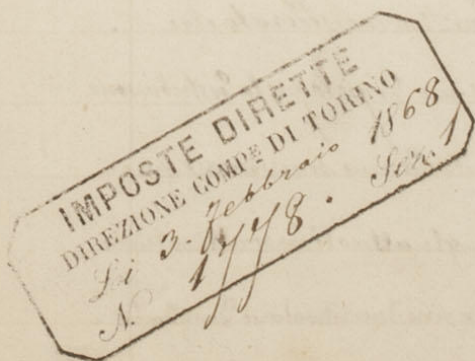 IMPOSTE DIRETTE
DIREZIONE COMPᴱ DI TORINO
Li 3 Febbraio 1868
N. 1778. Sez. 1